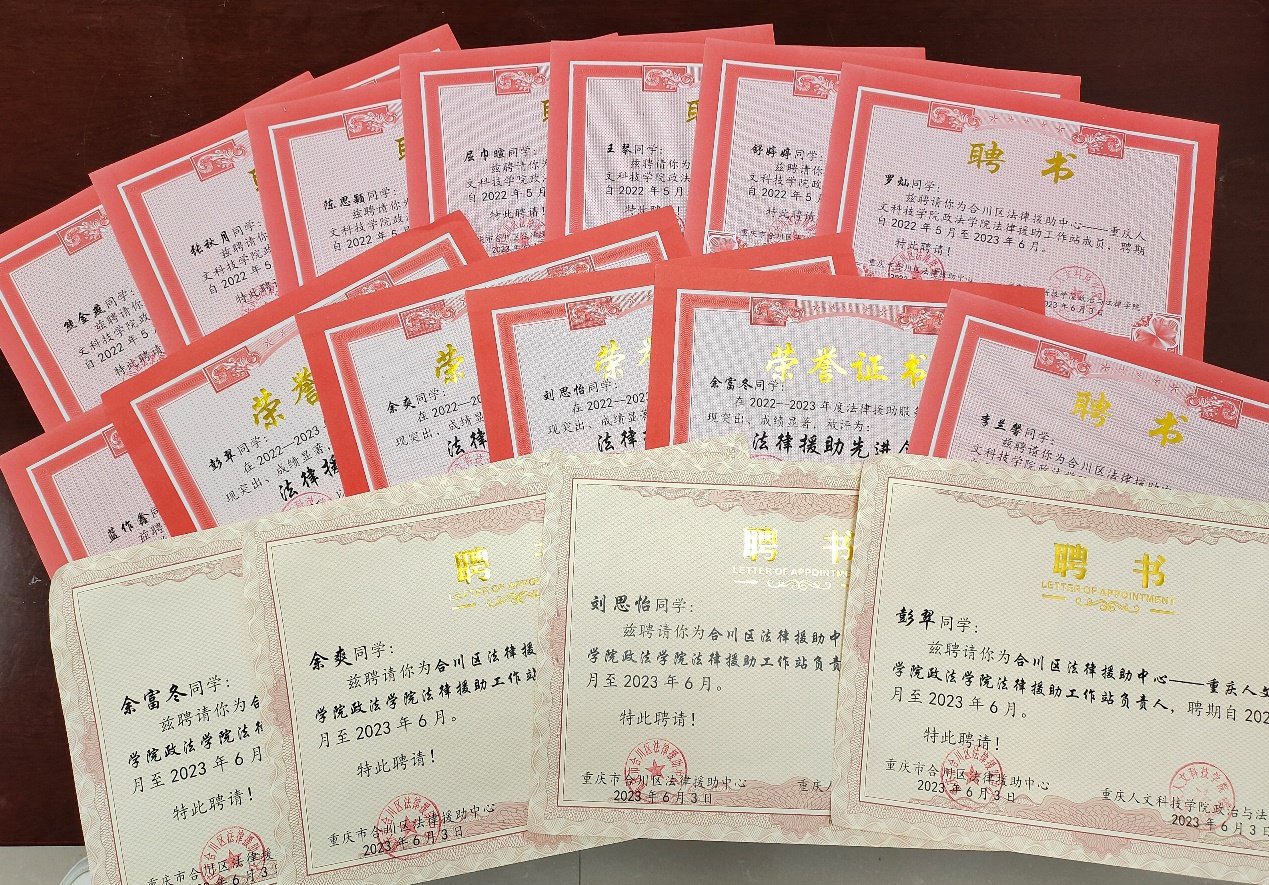 熊金燕同学:
兹聘请你
文科技学院政
自2022年5
特此聘请
张秋月同学:
兹聘请你为
文科技学院政
自2022年5
特此聘
陈思颖同学:
兹聘请你
文科技学院政
自2022年5月
聘
屈巾暄同学:
兹聘请你为
文科技学院政法
自2022年5月
特此聘请!
王琴同学:
兹聘请你为
文科技学院政法
自2022年5月
特此聘请!
舒婷婷同学:
兹聘请你为
文科技学院政
自2022年5月
特此聘请!
聘 书
罗灿同学:
兹聘请你为合川区法律援助中心——重庆人
文科技学院政法学院法律援助工作站成员,聘期
自2022年5月至2023年6月。
特此聘请!
重庆市合川区法律援助中心
2023年6月3日
蓝作鑫同
兹聘
荣誉
彭翠同学:
在2022—2023
现突出、成绩显著,
法律援
荣
余爽同学:
在2022—20
现突出、成绩显
法律
荣誉
刘思怡同学:
在2022—2023
现突出、成绩显著
法律
荣誉证书
余富冬同学:
在2022—2023年度法律援助服务
现突出、成绩显著,被评为:
法律援助先进个
聘 书
李兰馨同学:
兹聘请你为合川区法律援助中心——重庆人
余富冬同学:
兹聘请你为合
学院政法学院法律
月至2023年6月
特此聘请!
重庆市合川区法律援
年6月3日
聘 书
LETTER OF APPOINTMENT
余爽同学:
兹聘请你为合川区法律援
学院政法学院法律援助工作站
月至2023年6月。
特此聘请!
重庆市合川区法律援助中心
2023年6月3日
聘 书
LETTER OF APPOINTM
刘思怡同学:
兹聘请你为合川区法律援助中
学院政法学院法律援助工作站负责
月至2023年6月。
特此聘请!
重庆市合川区法律援助中心
重庆人
2023年6月3日
聘 书
LETTER OF APPOINTMENT
彭翠同学:
兹聘请你为合川区法律援助中心——重庆人文
学院政法学院法律援助工作站负责人,聘期自202
月至2023年6月。
特此聘请!
重庆市合川区法律援助中心
2023年6月3日
重庆人文科技学院政治与法
2023年6月3日